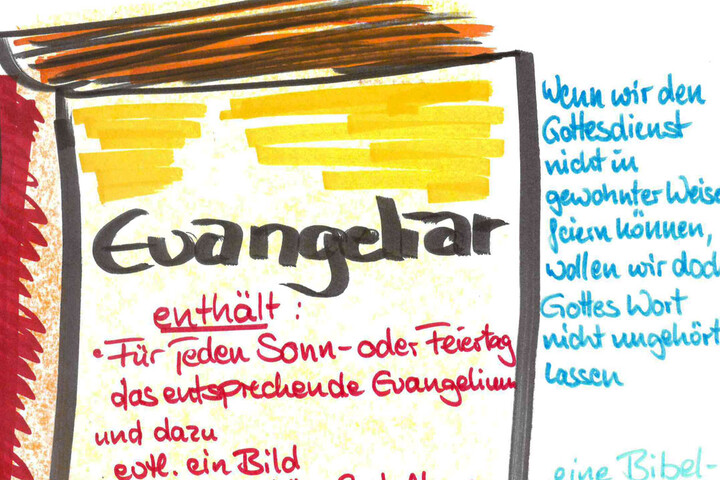 Evangeliar
enthält :
• Für jeden Sonn- oder Feiertag
das entsprechende Evangelium
und dazu
evtl. ein Bild
Wenn wir den
Gottesdienst
nicht in
gewohnter Weise
feiern können,
wollen wir doch
Gottes Wort
nicht ungehört
lassen
eine Bibel-